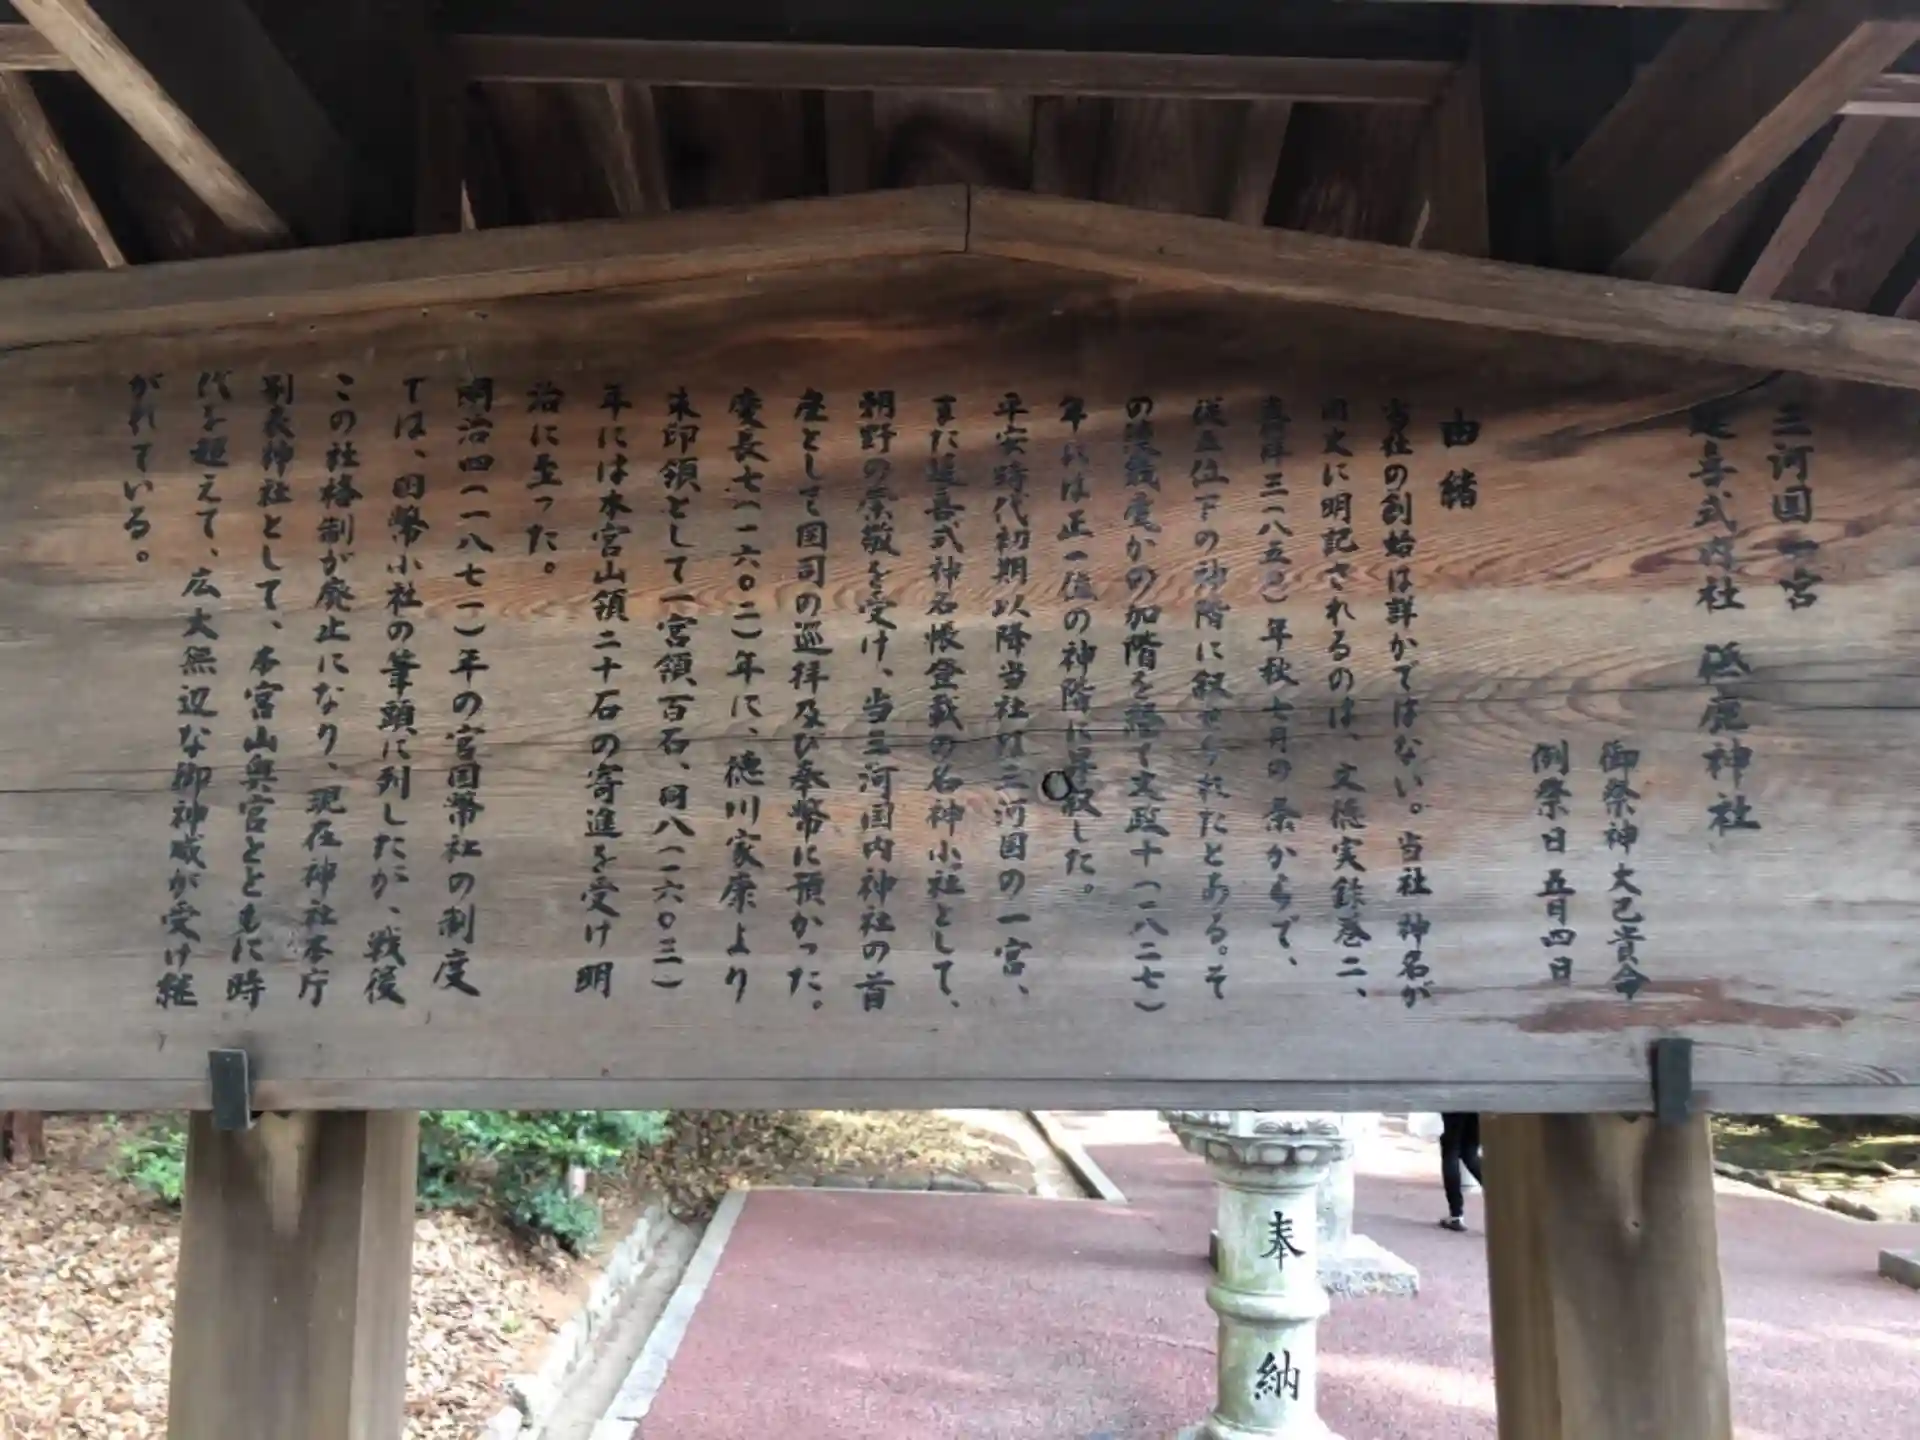 三河国一宮
延喜式内社 砥鹿神社
御祭神 大己貴命
例祭日 五月四日
由緒
当社の創始は詳かではない。当社 神名が
国史に明記されるのは、文徳実録巻二、
嘉祥三(八五〇)年秋七月の条からで、
従五位下の神階に叙せられたとある。そ
の後幾度かの加階を経て文政十(一八二七)
年には正一位の神階に昇叙した。
平安時代初期以降当社は三河国の一宮、
また延喜式神名帳登載の名神小社として、
朝野の崇敬を受け、当三河国内神社の首
座として国司の巡拝及び奉幣に預かった。
慶長七(一六〇二)年に、徳川家康より
朱印領として一宮領百石、同八(一六〇三)
年には本宮山領二十石の寄進を受け明
治に至った。
明治四(一八七一)年の官国幣社の制度
では、国幣小社の筆頭に列したが、戦後
この社格制が廃止になり、現在神社本庁
別表神社として、本宮山奥宮とともに時
代を超えて、広大無辺な御神威が受け継
がれている。
奉
納